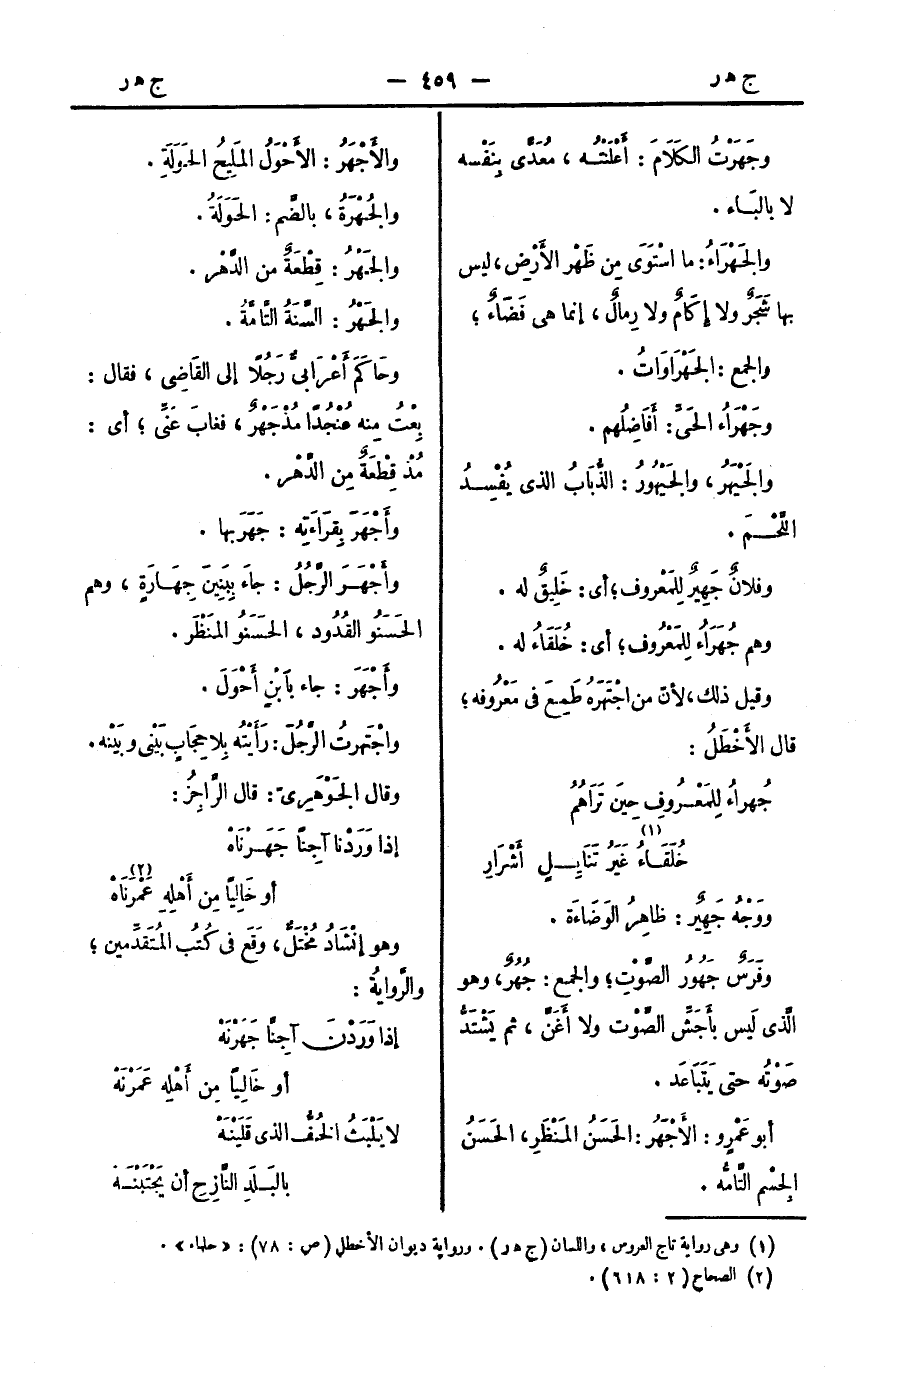 ج هر — ٤٥٩ — ج هر
وجَهَرْتُ الكَلَامَ : أَعْلَنْتُه ، مُعَدًّى بِنَفْسه
لا بالبَاء .
والجَهْرَاءُ : ما اسْتَوَى مِن ظَهْر الأَرْض ، ليس
بها شَجَرٌ ولا إكَامٌ ولا رِمالٌ ، إنما هى فَضَاءٌ ؛
والجمع : الجَهْرَاوَاتُ .
وجَهْرَاء الحَىِّ : أَفَاضِلُهم .
والجَيْهَرُ ، والجَيْهُورُ : الذُّبَابُ الذى يُفْسِدُ
اللَّحْمَ .
وفلانٌ جَهِيرٌ للمَعْروف ؛ أى : خَلِيقٌ له .
وهم جُهَرَاءُ للمَعْروف ؛ أى : خُلَقَاء له .
وقيل ذلك ، لأنّ من اجْتَهَرَهُ طَمِعَ فى مَعْرُوفه ؛
قال الأَخْطَلُ :
جُهراءُ للمَعْرُوفِ حِينَ تَرَاهُمُ
خُلَقَاءُ غَيْرُ تَنَابِلٍ أَشْرَارِ (١)
ووَجْهٌ جَهِيرٌ : ظاهِرُ الوَضَاءَة .
وفَرَسٌ جَهْوَرُ الصَّوْتِ ؛ والجمع : جُهُرٌ ، وهو
الَّذى لَيس بأَجَشِّ الصَّوْت ولا أَغَنَّ ، ثم يَشْتَدُّ
صَوْتُه حتى يَتَبَاعَد .
أبو عَمْرٍو : الأَجْهَرُ : الحَسَنُ المَنْظَرِ ، الحَسَنُ
الجِسْم التَّامُّه .
والأَجْهَرُ : الأَحْوَلُ المَلِيحُ الحَوَلَةِ .
والجُهْرَةُ ، بالضَّم : الحَوَلَةُ .
والجَهْرُ : قِطْعَةٌ من الدَّهْر .
والجَهْرُ : السَّنَةُ التَّامَّةُ .
وحَاكَمَ أَعْرَابىٌّ رَجُلًا إلى القَاضِى ، فقال :
بِعْتُ منه عُنْجُدًا مُذْ جَهْرٌ ، فغابَ عَنِّى ؛ أى :
مُذْ قِطْعَةٌ مِن الدَّهْر .
وأَجْهَرَ بِقرَاءَتِه : جَهَرَ بها .
وأَجْهَرَ الرَّجُلُ : جاءَ بِبَنِينَ جِهَارَةٍ ، وهم
الحَسَنُو القُدُود ، الحَسَنُو المَنْظَر .
وأَجْهَرَ : جاء بآبْنٍ أَحْوَلَ .
واجْتَهرتُ الرَّجُلَ : رَأَيْتُه بِلا حِجَابٍ بَيْنى وبَيْنه .
وقال الجَوْهَرِىّ : قال الرَّاجِزُ :
إذا وَرَدْنا آجِنًا جَهَرْنَاهْ
أو خَالِيًا مِن أَهْلِهِ عَمْرنَاهْ (٢)
وهو إنْشَادُ مُخْتَلٌّ ، وَقَع فى كُتُب المُتَقَدِّمين ؛
والرَّوايةُ :
إذا وَرَدْنَ آجِنًا جَهَرْنَهْ
أو خَالِيًا مِن أَهْلِه عَمَرْنَهْ
لا يَلْبَثُ الخُفُّ الذى قَلَبْنَهْ
بالبَلَدِ النَّازِحِ أن يَجْتَبْنَهْ
(١) وهى رواية تاج العروس ، واللسان (ج هر) . ورواية ديوان الأخطل (ص : ٧٨) : «حلماء» .
(٢) الصحاح (٢ : ٦١٨) .